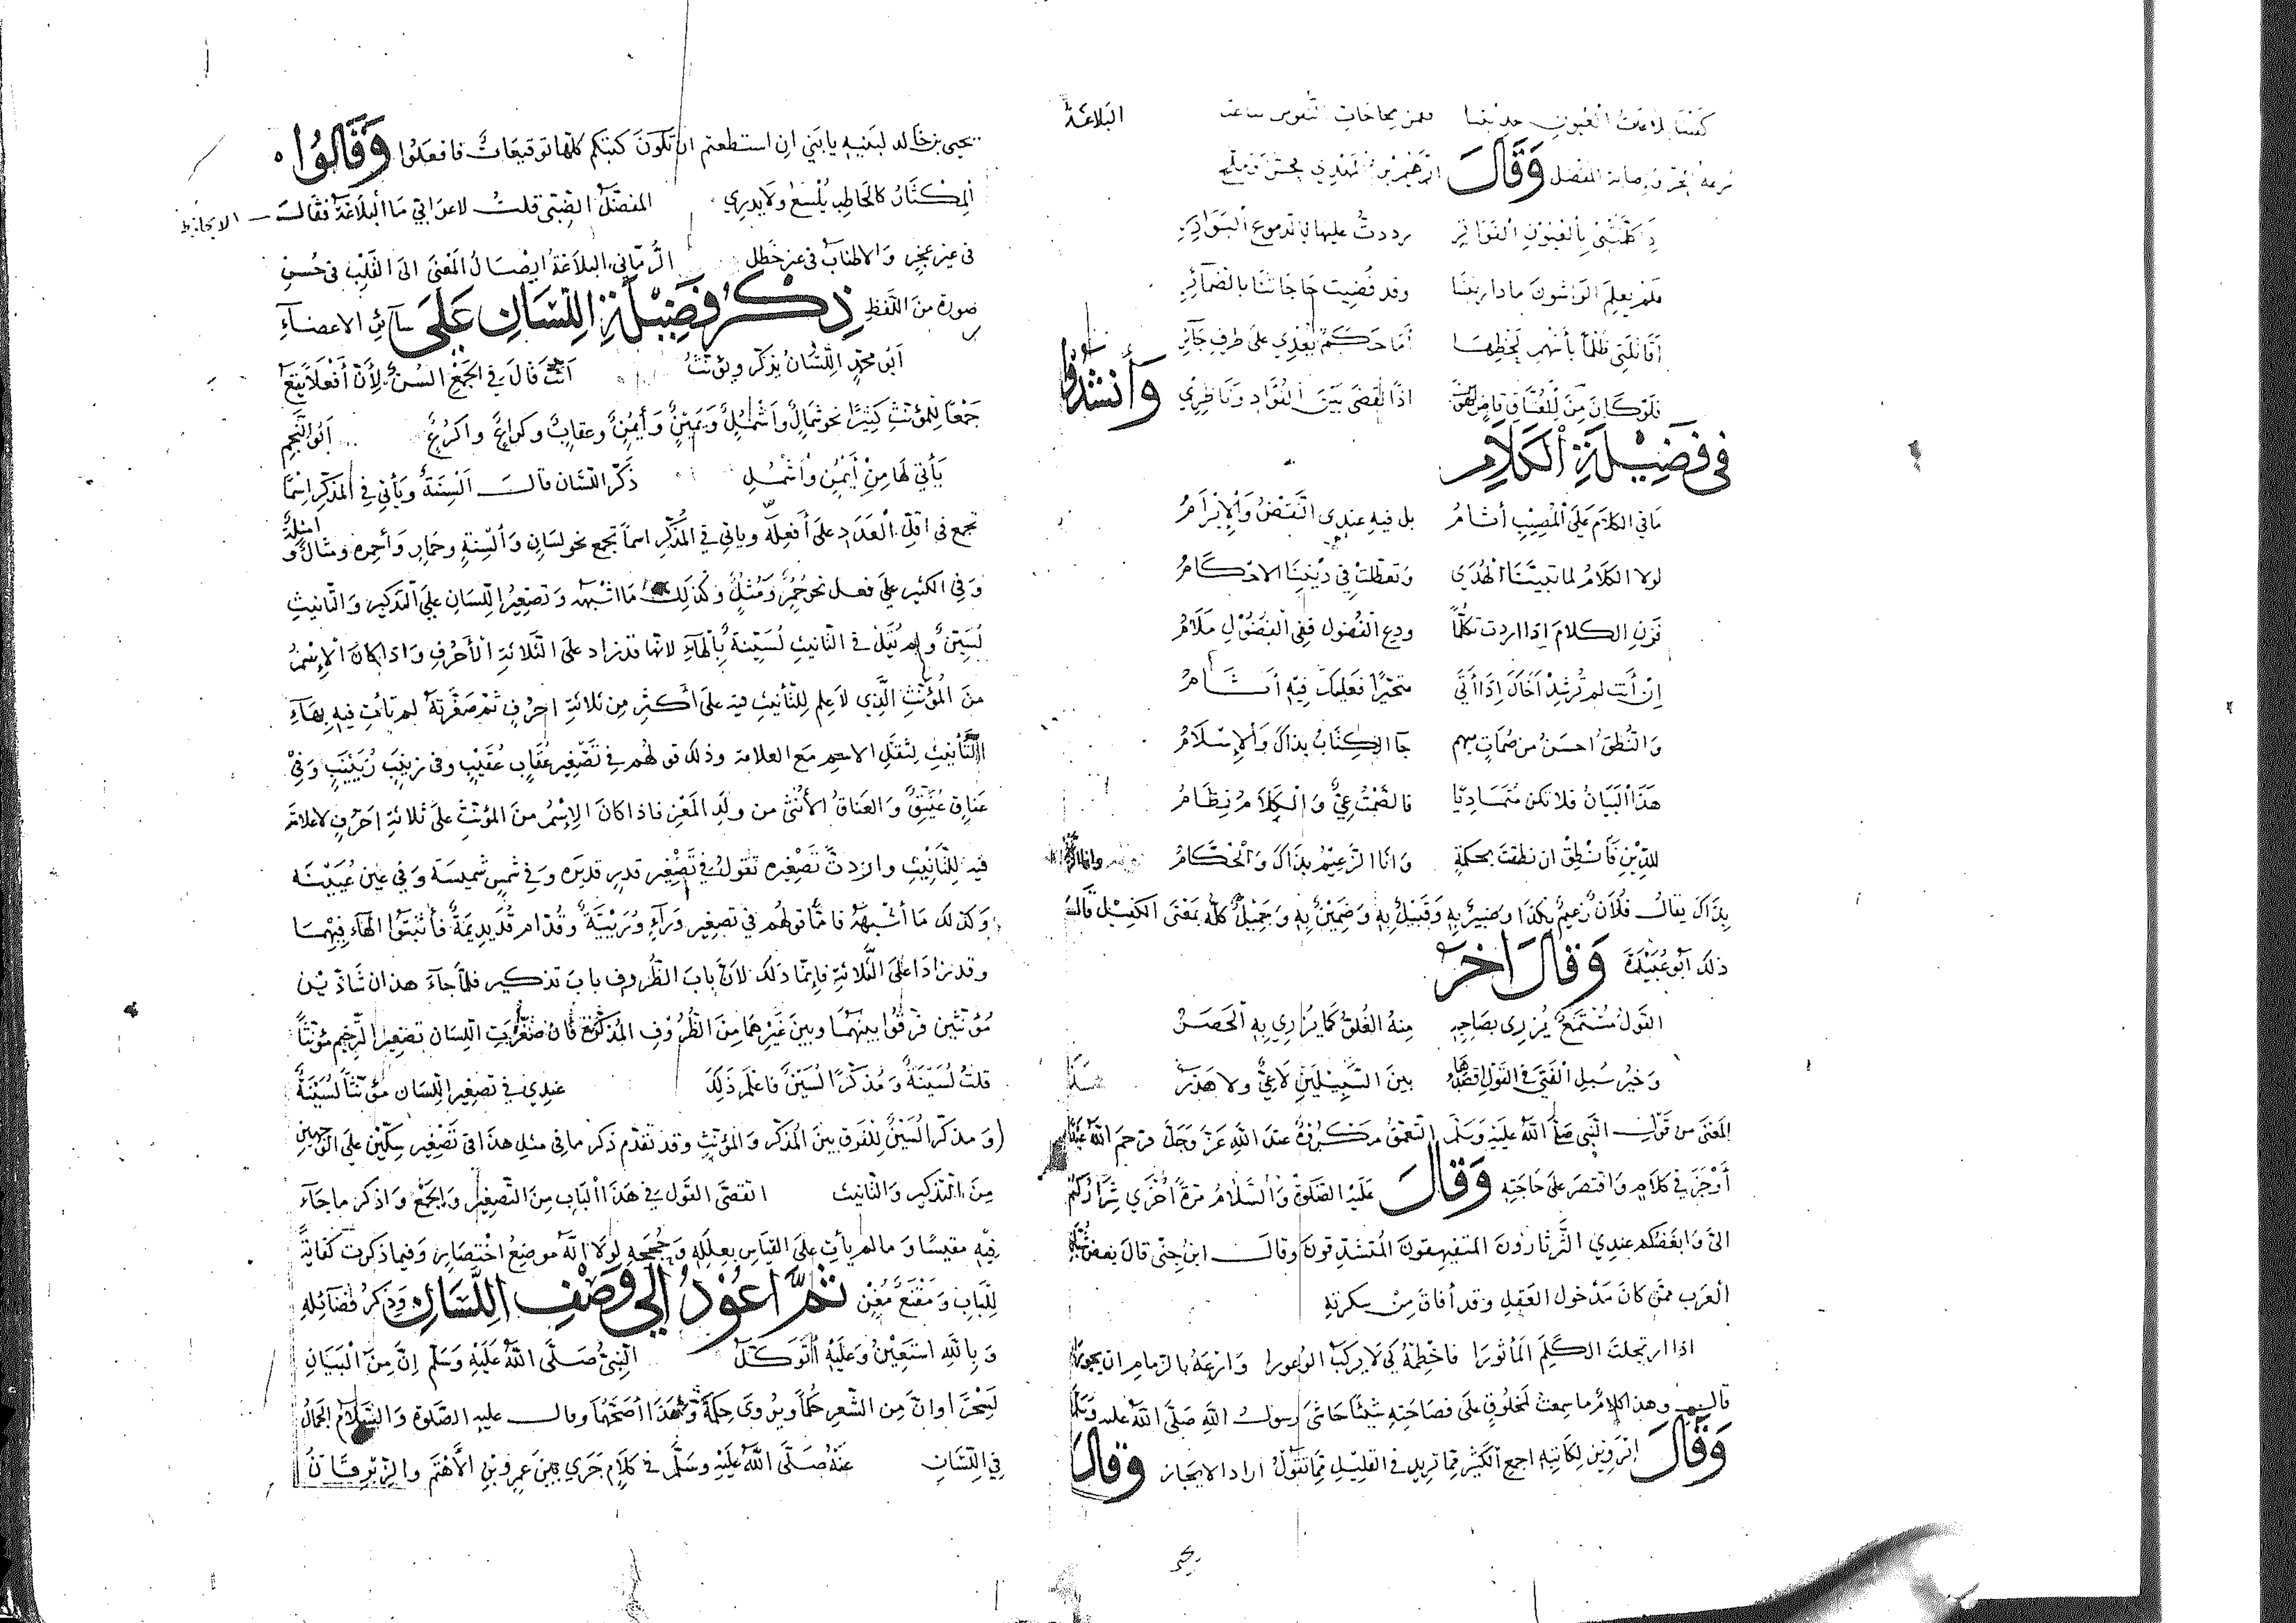 البلاغة
وقال
فلم يعلم الواشون ما دار بيننا وقد قضيت حاجاتنا بالضمائر
أقاتلتي ظلما بأسهم لحظها أما حكم يعدي على طرف جائر
فلو كان للعشاق قاض من الهوى اذا لقضى بين الفؤاد وناظري وأنشدوا
في فضيلة الكلام
ما في الكلام على المصيب أثام بل فيه عندي النقض والإبرام
لولا الكلام لما تبيننا الهدى وتعطلت في ديننا الاحكام
فزن الكلام اذا اردت تكلما ودع الفضول ففي الفضول ملام
إن أنت لم ترشد أخاك إذا أتى متحيرا فعليك فيه أثام
والنطق احسن من صمات مبهم جا الكتاب بذاك والإسلام
هذا البيان فلا تكن متماديا فالصمت عي والكلام نظام
للدين فأنطق ان نطقت بحكمة وانا الزعيم بذاك والحكام
بذاك يقال فلان زعيم بكذا وصبير به وقبيل به وضمين به وحميل كله بمعنى الكفيل قال
ذلك أبو عبيدة وقال اخر
القول مستمع يزري بصاحبه منه الغلو كما يزري به الحصر
وخير سبل الفتى في القول اقصدها بين السبيلين لا عي ولا هذر
المعنى من قول النبي صلى الله عليه وسلم التعمق عند الله عز وجل فرحم الله عبدا
أوجز في كلامه واقتصر على حاجته وقال عليه الصلوة والسلام مرة أخرى
الى وابغضكم عندي الثرثارون المتفيهقون المتشدقون وقال ابن جني قال بعض
العرب ممن كان مدخول العقل وقد أفاق من سكرته
اذا ارتجلت الكلم المأثورا فاخطمه كي لا يركب الوعورا وازعه بالزمام ان يجورا
قال وهذا كلام ما سمعت لمخلوق على فصاحته شيئا حاشى رسول الله صلى الله عليه وسلم
وقال ابرويز لكاتبه اجمع الكثير مما تريد في القليل مما تقول اراد الايجاز وقال
يحيى بن خالد لبنيه يا بني ان استطعتم ان تكون كتبكم كلها توقيعات فافعلوا وقالوا
المكثار كالحاطب يلسع ولا يدري المفضل الضبي قلت لاعرابي ما البلاغة فقال الايجاز
في غير عجز والاطناب في غير خطل الرماني البلاغة ايصال المعنى الى القلب في حسن
صورة من اللفظ ذكر فضيلة اللسان على سائر الاعضاء
أبو محمد اللسان يذكر ويؤنث أنث قال في الجمع السن لأن أفعلا يقع
جمعا للمؤنث كثيرا نحو شمال وأشمل ويمين وأيمن وعقاب وكراع واكرع أبو النجم
يأتي لها من أيمن وأشمل ذكر اللسان قال السنة ويأتي في المذكر اسما
تجمع في اقل العدد على أفعلة وياتي في المذكر اسما تجمع نحو لسان وألسنة وحمار وأحمرة ومثال وامثلة
وفي الكثير على فعل نحو حمر ومثل وكذلك ما اشبهه وتصغير اللسان على التذكير والتانيث
لسين ولم تقل في التانيث لسينة بالهاء لانها قد زاد على الثلاثة الأحرف واذا كان الإسم
من المؤنث الذي لا علم للتأنيث فيه على أكثر من ثلاثة احرف ثم صغرته لم تأت فيه بهاء
التأنيث لثقل الاسم مع العلامة وذلك قولهم في تصغير عقاب عقيب وفي زينب زيينب وفي
عناق عنيق والعناق الأنثى من ولد المعز فاذا كان الإسم من المؤنث على ثلاثة احرف لا علامة
فيه للتأنيث واردت تصغيره تقول في تصغير قدر قديره وفي شمس شميسة وفي عين عيينه
وكذلك ما أشبهه فاما قولهم في تصغير وراء وريئة وقدام قديديمة فأثبتوا الهاء فيهما
وقد زادا على الثلاثة فإنما ذلك لان باب الظروف باب تذكير فلما جاء هذان شاذين
مؤنثين فرقوا بينهما وبين غيرهما من الظروف المذكرة فان صغرت اللسان تصغير الترخيم مؤنثا
قلت لسينة ومذكرا لسين فاعلم ذلك عندي في تصغير اللسان مؤنثا لسينة
ومذكرا لسين للفرق بين المذكر والمؤنث وقد تقدم ذكر ما في مثل هذا في تصغير سكين على الوجهين
من التذكير والتانيث انقضى القول في هذا الباب من التصغير والجمع واذكر ما جاء
فيه مقيسا وما لم يأت على القياس بعلله وحججه لولا انه موضع اختصار وفيما ذكرت كفاية
للباب ومقنع مغن ثم اعود إلى وصف اللسان وذكر فضائله
وبالله استعين وعليه اتوكل النبي صلى الله عليه وسلم إن من البيان
لسحرا وان من الشعر حكما ويروى حكمة وهذا أصحهما وقال عليه الصلوة والسلام الجمال
في اللسان عنه صلى الله عليه وسلم في كلام جرى بين عمرو بن الأهتم والزبرقان